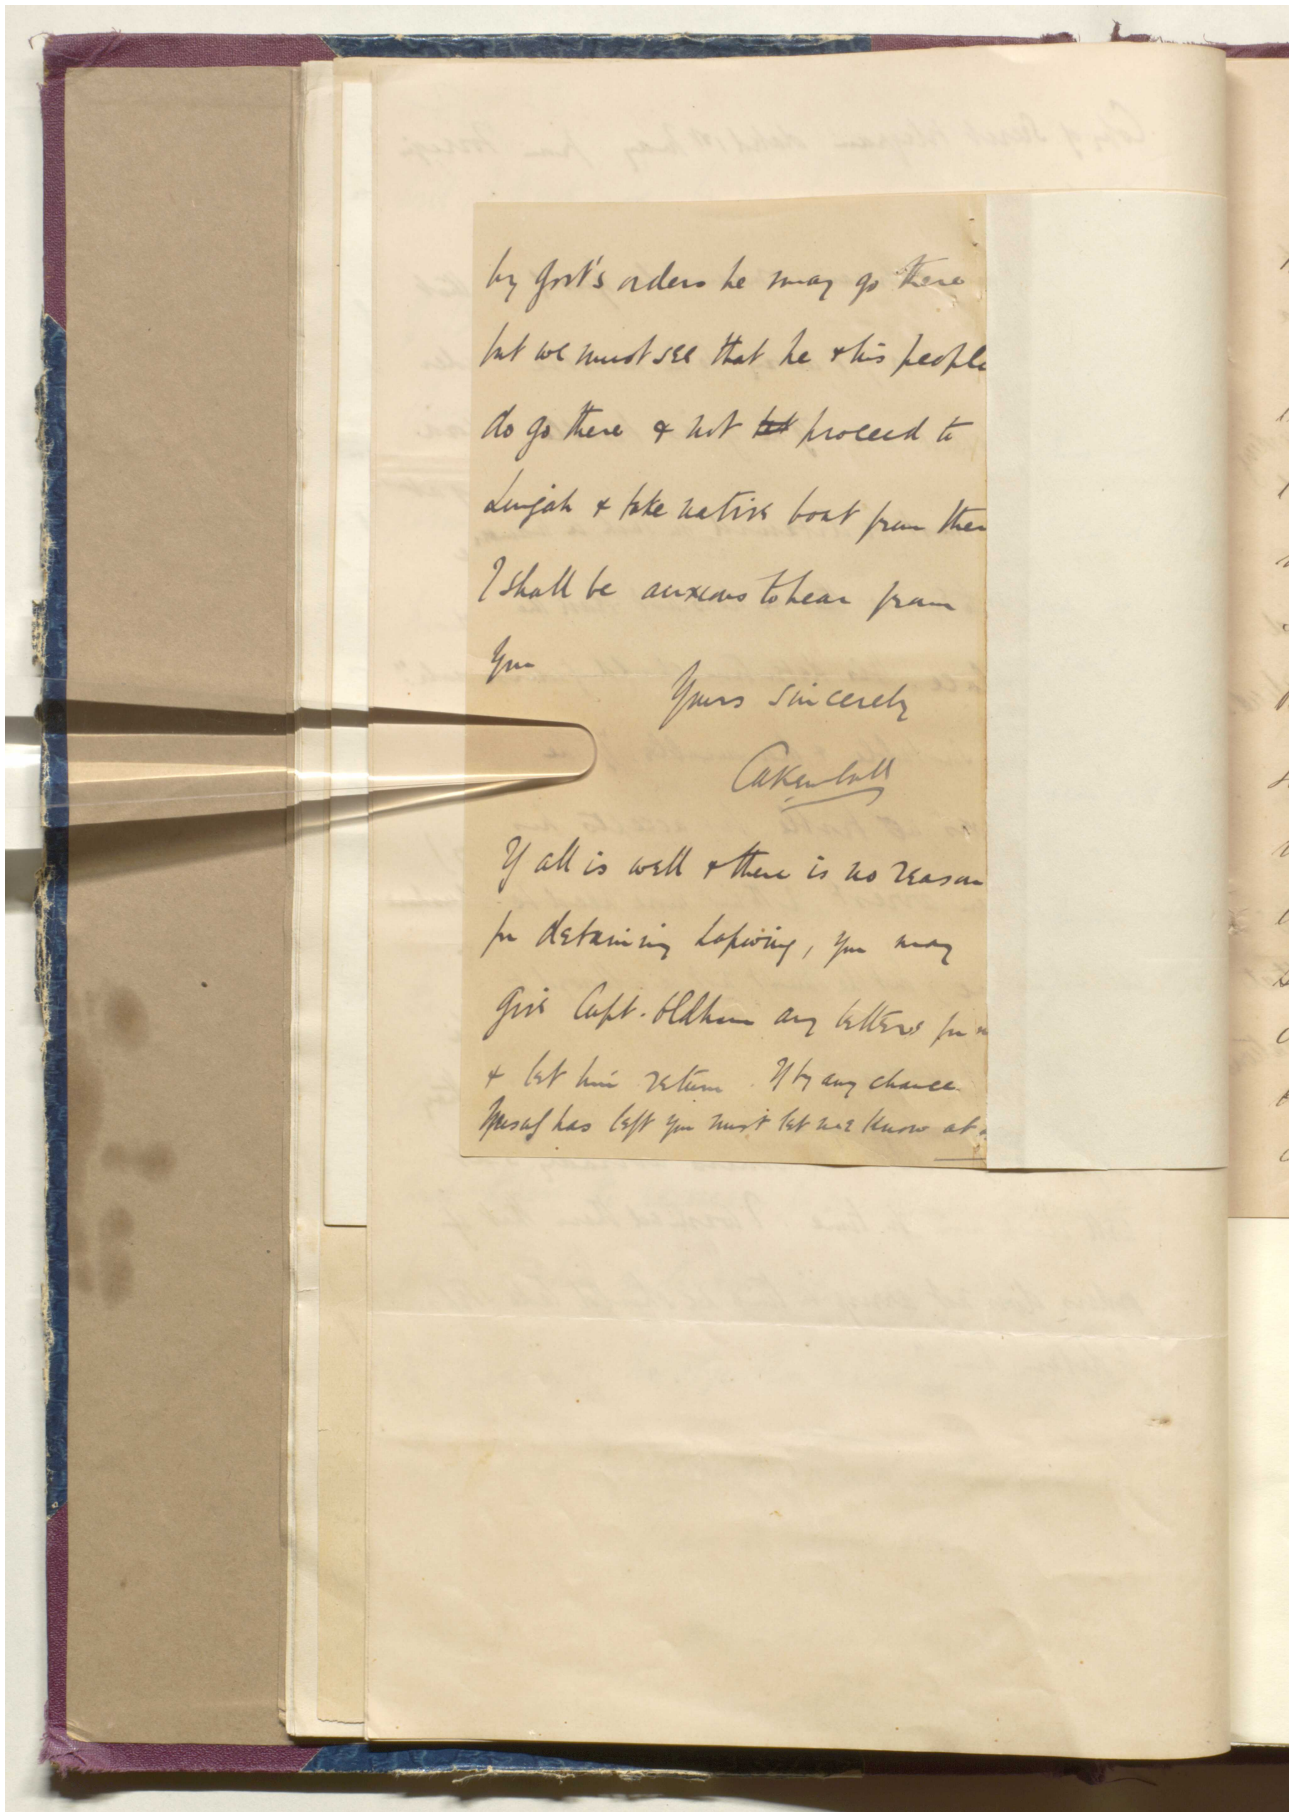 by Govt's orders he may go there
but we must see that he & his people
do go there & not let proceed to
Lingah & take native boat from ther
I shall be anxious to hear from
you
Yours sincerely
CAKemball
If all is well & there is no reason
for detaining Lapwing, you may
give Capt. Oldham any letters for m
& let him return. If by any chance
Yusuf has left you must let me know at